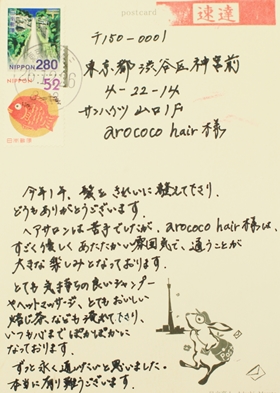 postcard
速達
NIPPON 280
NIPPON 52
日本郵便
〒150-0001
東京都渋谷区神宮前
4-22-14
サンハウツ山口1F
arococo hair 様
今年1年、髪をきれいに整えて下さり、
どうもありがとうございます。
ヘアサロンは苦手でしたが、arococo hair様は、
すごく優しくあたたかい雰囲気で、通うことが
大きな楽しみとなっております。
とても気持ちの良いシャンプー
やヘッドマッサージ、とてもおいしい
焙じ茶なども淹れて下さり、
いつも心までぽかぽかに
なっております。
ずっと永く通いたいと思いました。
本当に有り難うございます。